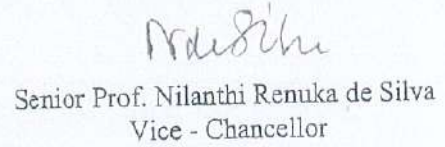 NRdeSilva
Senior Prof. Nilanthi Renuka de Silva
Vice - Chancellor